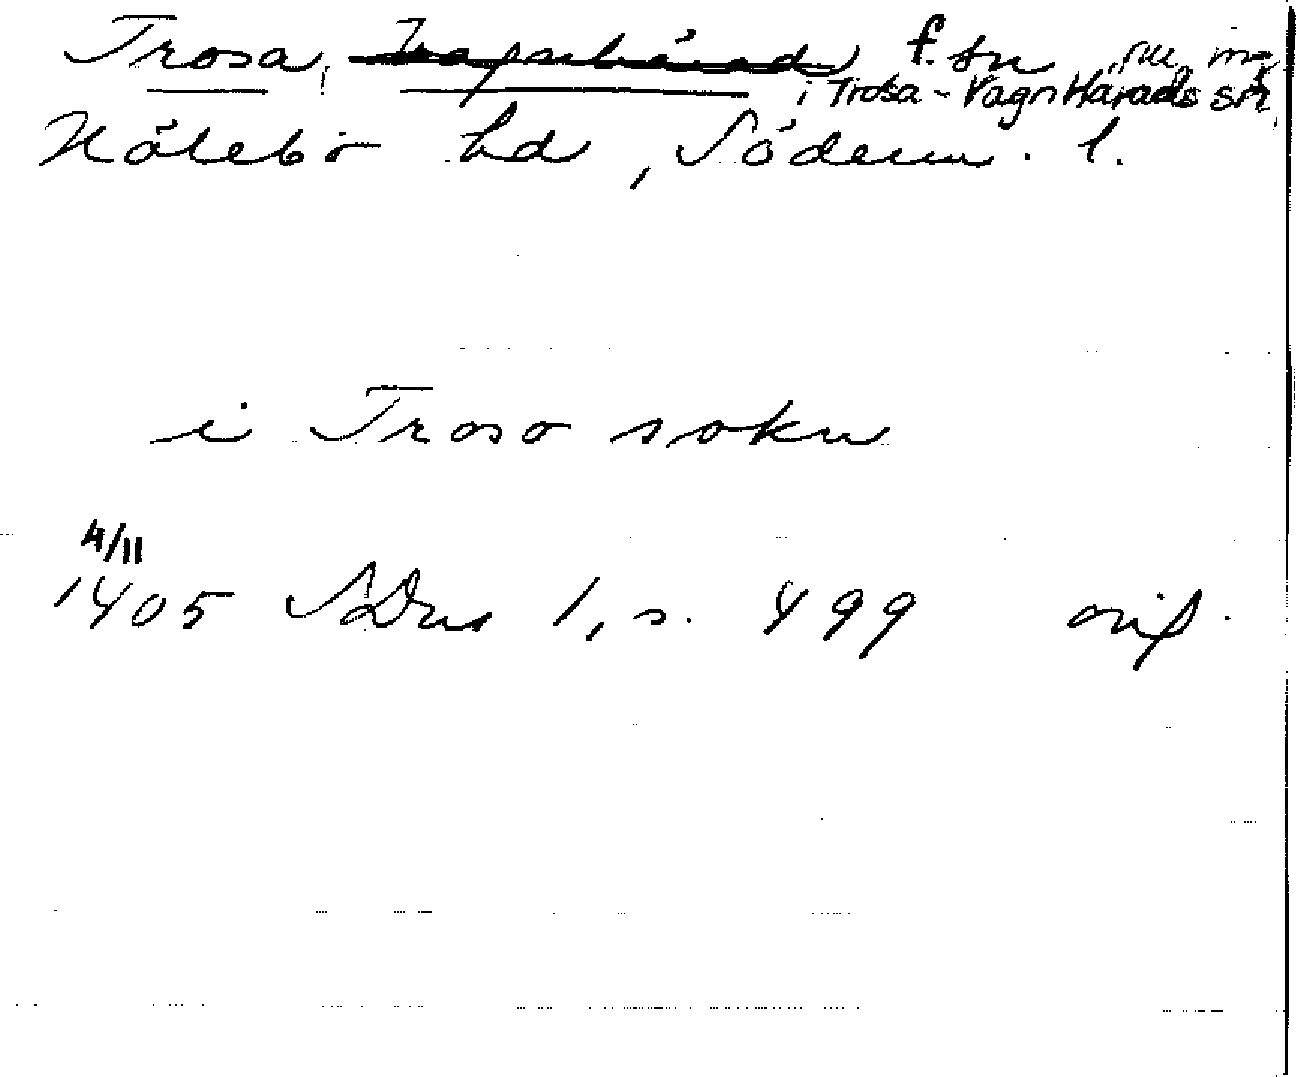 Trosa, f. sn nu
i Trosa-VagnHärads sn,
Hölebo hd, Söderm. l.
i Troso sokn
4/11
1405 SDns 1, s. 499 orig.